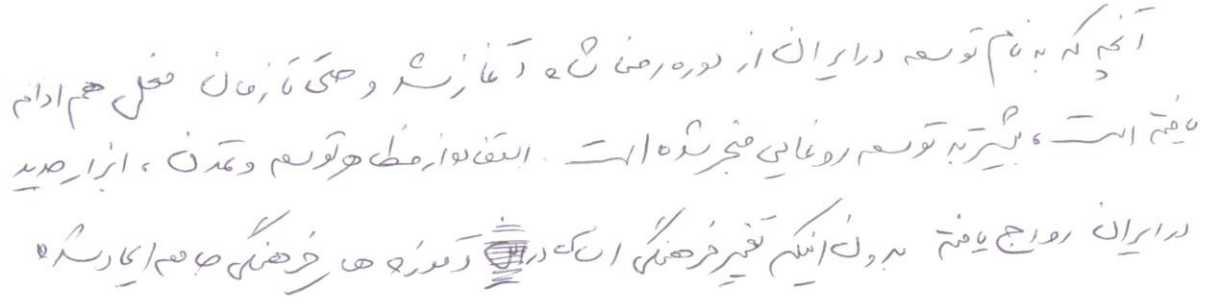 آنچه که به نام توسعه در ایران از دوره رضا شاه آغاز شد و حتی تا زمان فعلی هم ادامه
یافته است، بیشتر به توسعه رونمایی منجر شده است. استفاده از مظاهر توسعه و تمدن، ابزار جدید
در ایران رواج یافته بدون اینکه تغییر فرهنگی اساسی در آموزه های فرهنگی جامعه ایجاد شده